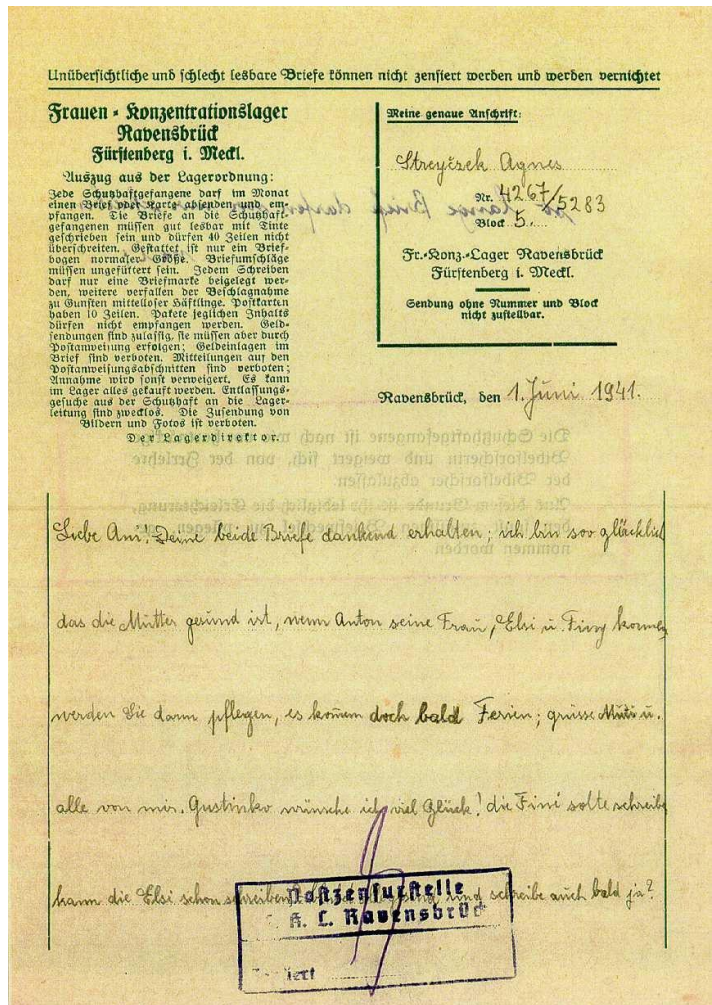 Unübersichtliche und schlecht lesbare Briefe können nicht zensiert werden und werden vernichtet
Frauen-Konzentrationslager
Ravensbrück
Fürstenberg i. Meckl.
Auszug aus der Lagerordnung:
Jede Schutzhaftgefangene darf im Monat
einen Brief oder Karte absenden und em-
pfangen. Die Briefe an die Schutzhaft-
gefangenen müssen gut lesbar mit Tinte
geschrieben sein und dürfen 40 Zeilen nicht
überschreiten. Gestattet ist nur ein Brief-
bogen normaler Größe. Briefumschläge
müssen ungefüttert sein. Jedem Schreiben
darf nur eine Briefmarke beigelegt wer-
den, weitere verfallen der Beschlagnahme
zu Gunsten mittelloser Häftlinge. Postkarten
haben 10 Zeilen. Pakete jeglichen Inhalts
dürfen nicht empfangen werden. Geld-
sendungen sind zulässig, sie müssen aber durch
Postanweisung erfolgen; Geldeinlagen im
Brief sind verboten. Mitteilungen auf den
Postanweisungsabschnitten sind verboten;
Annahme wird sonst verweigert. Es kann
im Lager alles gekauft werden. Entlassungs-
gesuche aus der Schutzhaft an die Lager-
leitung sind zwecklos. Die Zusendung von
Bildern und Fotos ist verboten.
Der Lagerdirektor.
Meine genaue Anschrift:
Streyczek Agnes
Nr. 4267/5283
Block 5.
Fr.-Konz.-Lager Ravensbrück
Fürstenberg i. Meckl.
Sendung ohne Nummer und Block
nicht zustellbar.
Ravensbrück, den 1. Juni 1941.
Liebe Ani! Deine beide Briefe dankend erhalten; ich bin soo glücklich
das die Mutter gesund ist, wenn Anton seine Frau, Elsi u. Finy kommen
werden Sie dann pflegen, es kommen doch bald Ferien; grüsse Mutti u.
alle von mir. Gustinko wünsche ich viel Glück! die Fini solte schreiben
kann die Elsi schon schreiben? und schreibe auch bald ja?
Postzensurstelle
K. L. Ravensbrück